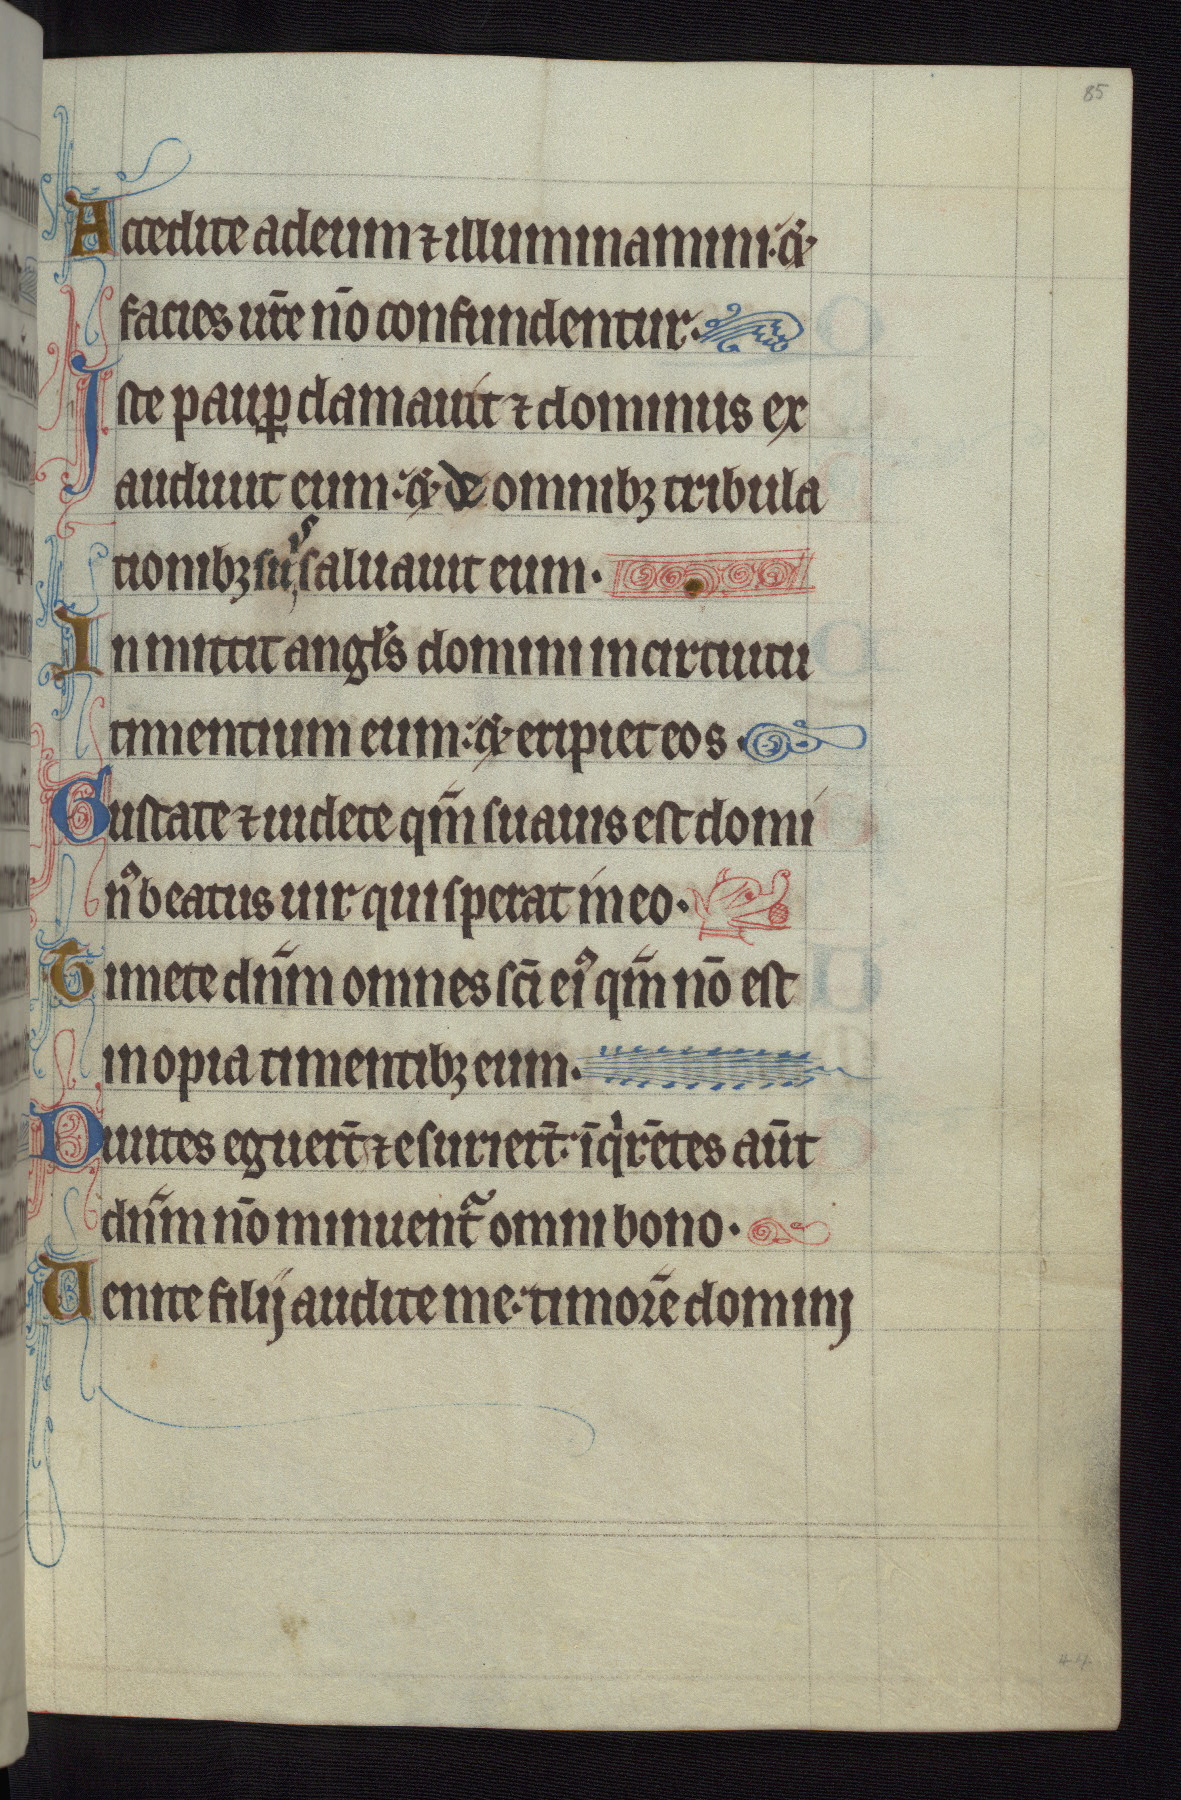 85
Accedite ad eum ⁊ illuminamini: &
facies ur̄e nō confundentur.
Iste paup̲ clamauit ⁊ dominus ex
audiuit eum: & de omnibꝫ tribula
tionibꝫ suis saluauit eum.
Inmittit angl̄s domini in circuitu
timentium eum: & eripiet eos.
Gustate ⁊ uidete qm̄ suauis est domi
nꝰ beatus uir qui sperat in eo.
Timete dn̄m omnes sc̄i eiꝰ qm̄ nō est
inopia timentibꝫ eum.
Diuites eguer̄t ⁊ esurier̄t: īq̇r̄ētes aūt
dn̄m nō minuent᷑ omni bono.
Uenite filij audite me: timorē dominj